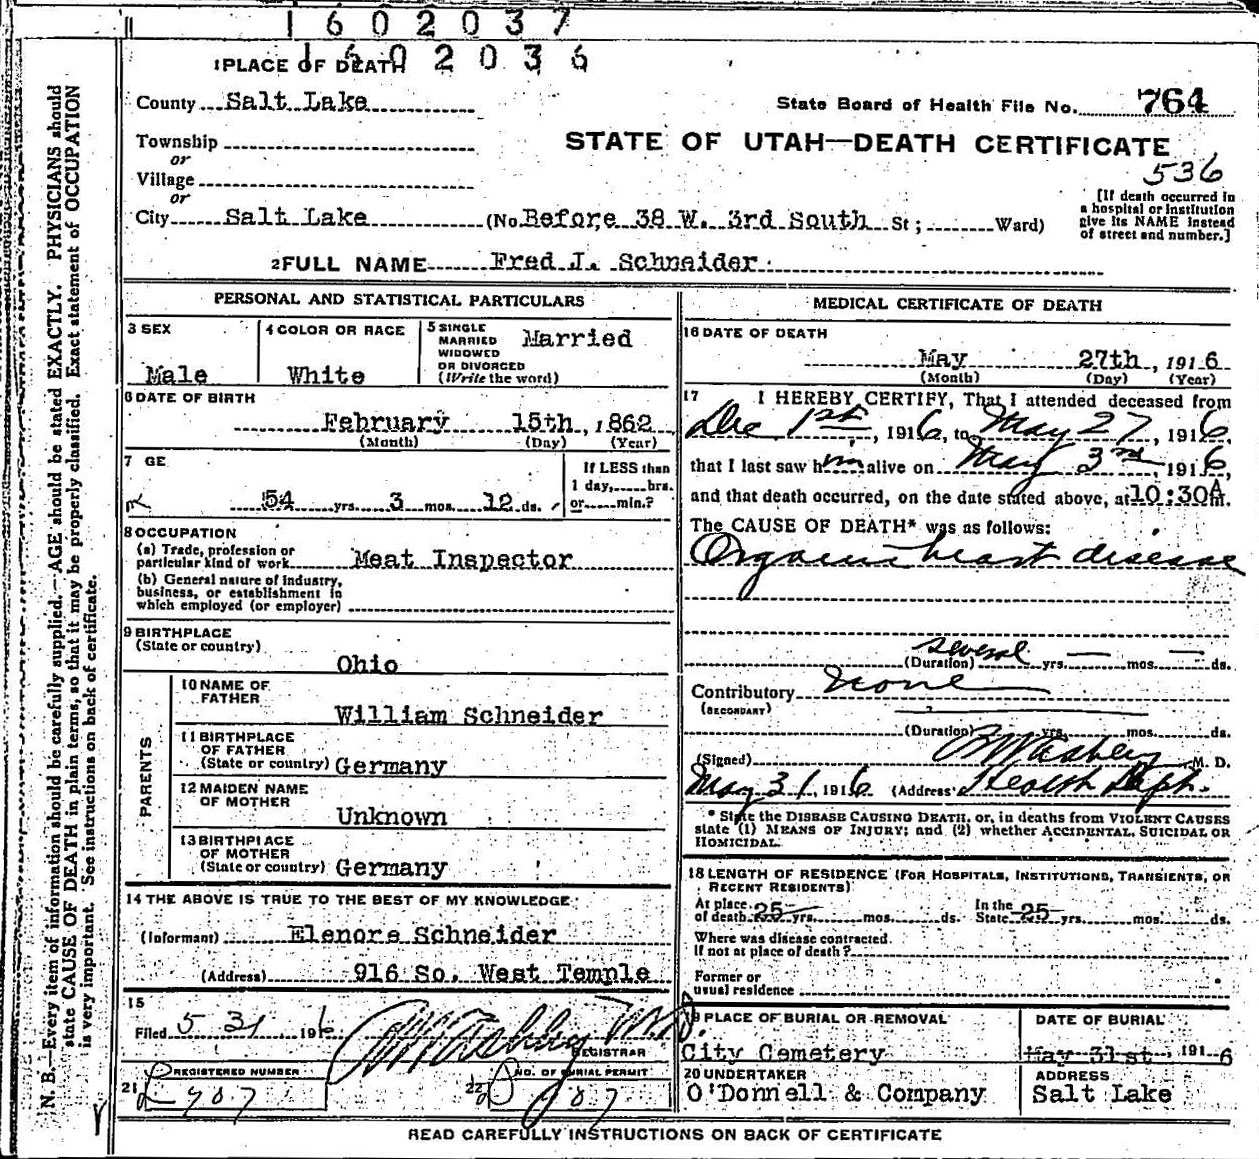 1602037
1602036
1 PLACE OF DEATH
County Salt Lake
State Board of Health File No. 764
Township
or
STATE OF UTAH—DEATH CERTIFICATE
536
Village
or
City Salt Lake (No. Before 38 W. 3rd South St; Ward)
[If death occurred in
a hospital or institution
give its NAME instead
of street and number.]
2 FULL NAME Fred J. Schneider
PERSONAL AND STATISTICAL PARTICULARS
3 SEX
Male
4 COLOR OR RACE
White
5 SINGLE
MARRIED
WIDOWED
OR DIVORCED
(Write the word)
Married
6 DATE OF BIRTH
February 15th, 1862
(Month) (Day) (Year)
7 GE
54 yrs. 3 mos. 12 ds.
If LESS than
1 day, hrs.
or min.?
8 OCCUPATION
(a) Trade, profession or
particular kind of work Meat Inspector
(b) General nature of industry,
business, or establishment in
which employed (or employer)
9 BIRTHPLACE
(State or country)
Ohio
PARENTS
10 NAME OF
FATHER
William Schneider
11 BIRTHPLACE
OF FATHER
(State or country) Germany
12 MAIDEN NAME
OF MOTHER
Unknown
13 BIRTHPLACE
OF MOTHER
(State or country) Germany
14 THE ABOVE IS TRUE TO THE BEST OF MY KNOWLEDGE
(Informant) Elenore Schneider
(Address) 916 So. West Temple
15
Filed 5 31, 1916
REGISTRAR
21 REGISTERED NUMBER
L 907
22 NO. OF BURIAL PERMIT
907
MEDICAL CERTIFICATE OF DEATH
16 DATE OF DEATH
May 27th, 1916
(Month) (Day) (Year)
17 I HEREBY CERTIFY, That I attended deceased from
Dec 1st, 1916, to May 27, 1916,
that I last saw him alive on May 3rd, 1916,
and that death occurred, on the date stated above, at 10:30A m.
The CAUSE OF DEATH* was as follows:
Organic heart disease
several
(Duration) yrs. — mos. — ds.
Contributory None
(SECONDARY)
(Duration) yrs. mos. ds.
(Signed) M. D.
May 31, 1916 (Address Health Dept.
* State the DISEASE CAUSING DEATH, or, in deaths from VIOLENT CAUSES
state (1) MEANS OF INJURY; and (2) whether ACCIDENTAL, SUICIDAL OR
HOMICIDAL.
18 LENGTH OF RESIDENCE (FOR HOSPITALS, INSTITUTIONS, TRANSIENTS, OR
RECENT RESIDENTS)
At place
of death 25 yrs. mos. ds.
In the
State 25 yrs. mos. ds.
Where was disease contracted.
If not at place of death?
Former or
usual residence
19 PLACE OF BURIAL OR REMOVAL
City Cemetery
DATE OF BURIAL
May 31st, 1916
20 UNDERTAKER
O'Donnell & Company
ADDRESS
Salt Lake
READ CAREFULLY INSTRUCTIONS ON BACK OF CERTIFICATE
N. B.—Every item of information should be carefully supplied. AGE should be stated EXACTLY. PHYSICIANS should
state CAUSE OF DEATH in plain terms, so that it may be properly classified. Exact statement of OCCUPATION
is very important. See instructions on back of certificate.